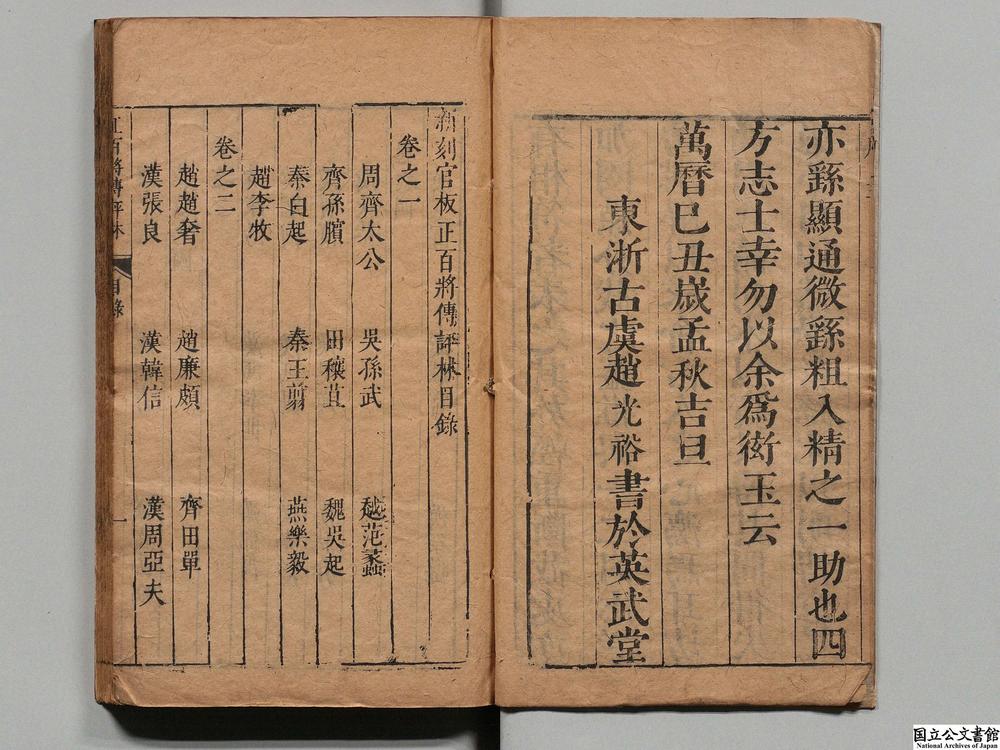 亦繇顯通微繇粗入精之一助也四
方志士幸勿以余爲衒玉云
萬曆己丑歲孟秋吉旦
東浙古虞趙光裕書於英武堂
新刻官板正百將傳評林目錄
卷之一
周齊太公 吳孫武 越范蠡
齊孫臏 田穰苴 魏吳起
秦白起 秦王翦 燕樂毅
趙李牧
卷之二
趙趙奢 趙廉頗 齊田單
漢張良 漢韓信 漢周亞夫
正百將傳評林 目錄 一
国立公文書館
National Archives of Japan